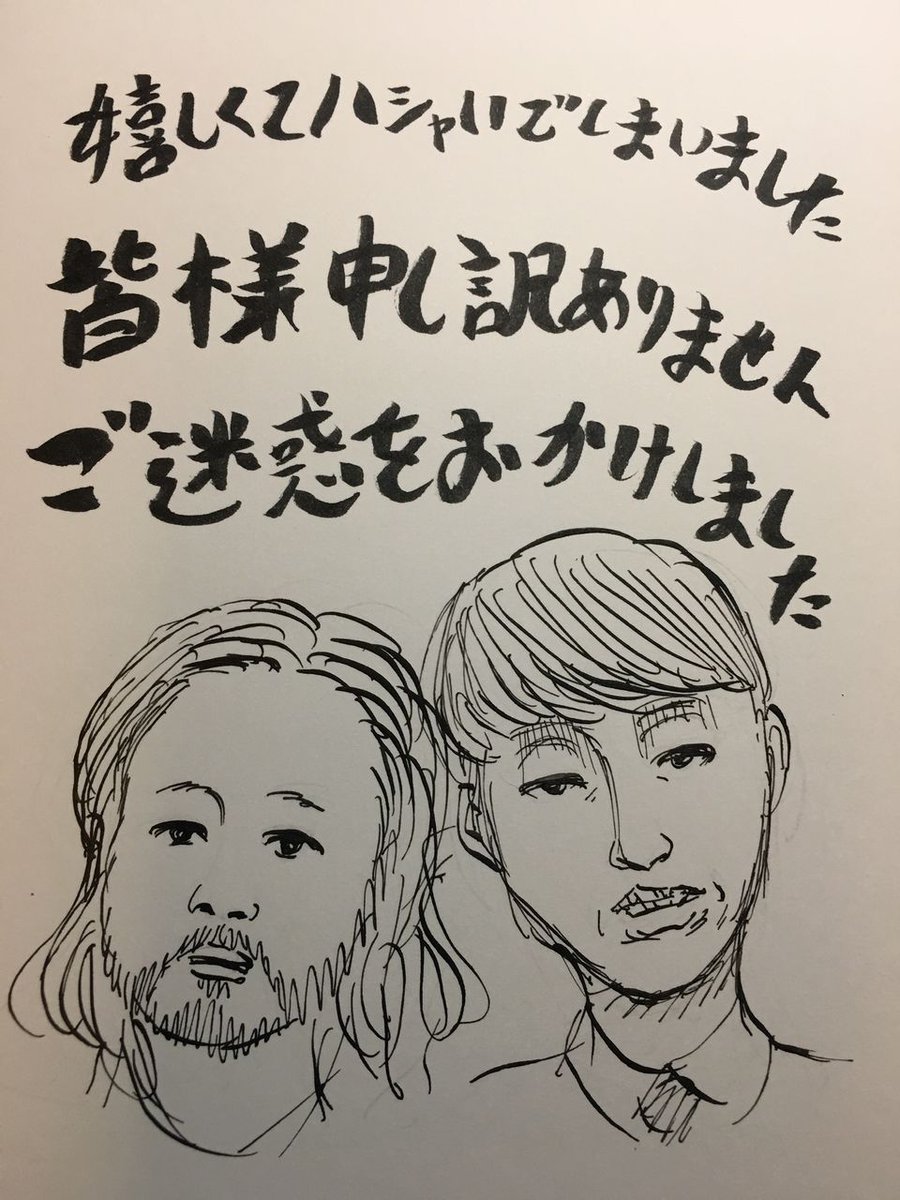 嬉しくてハシャいでしまいました
皆様申し訳ありません
ご迷惑をおかけしました